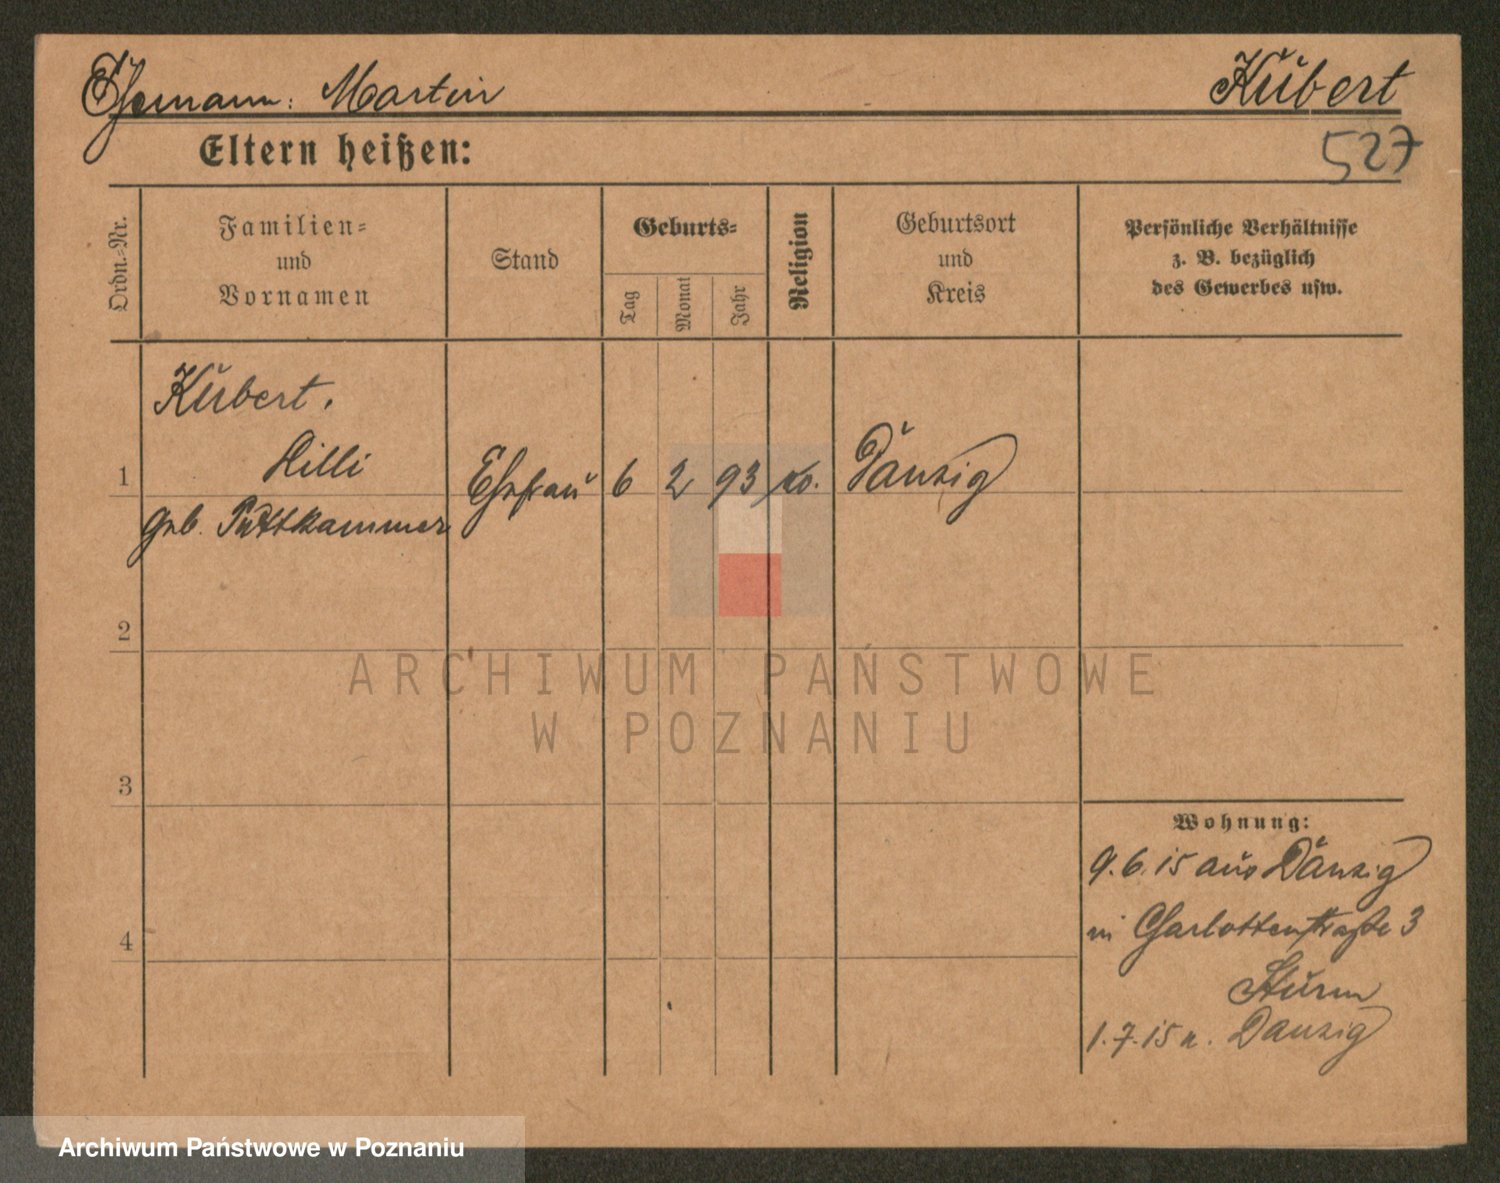 Ehemann: Martin Kubert
Eltern heißen: 527
Ordn.-Nr.
Familien-
und
Vornamen
Stand
Geburts-
Tag
Monat
Jahr
Religion
Geburtsort
und
Kreis
Persönliche Verhältnisse
z. B. bezüglich
des Gewerbes usw.
Kubert.
1 Lilli Ehefrau 6 2 93 Danzig
geb. Puttkammer
2
3
4
ARCHIWUM PAŃSTWOWE
W POZNANIU
Wohnung:
9.6.15 aus Danzig
in Charlottenstraße 3
Sturm
1.7.15 n. Danzig
Archiwum Państwowe w Poznaniu